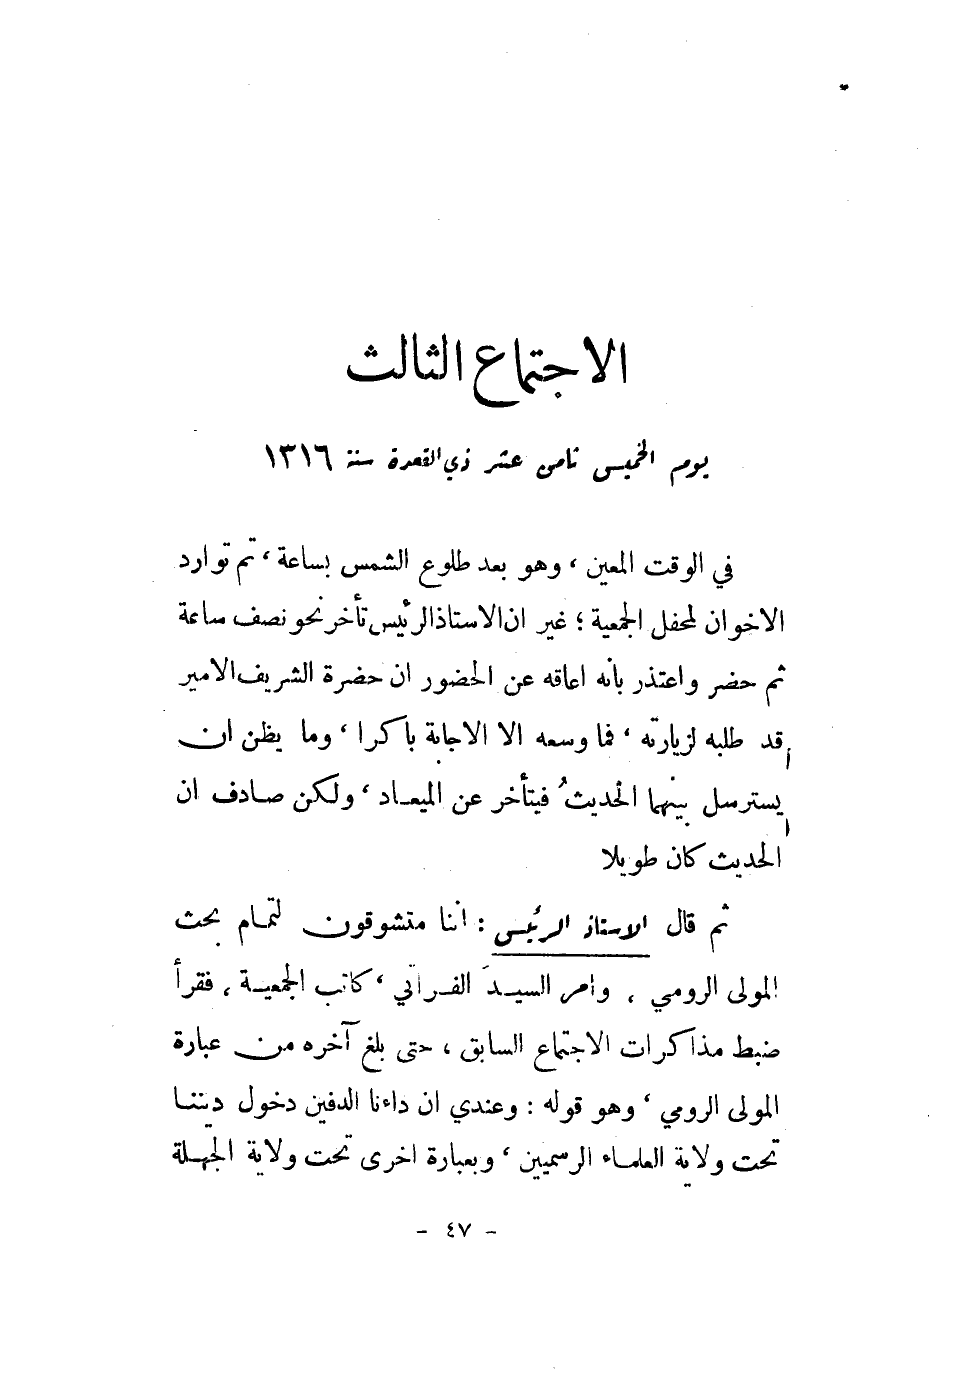 الاجتماع الثالث
يوم الخميس ثامن عشر ذي القعدة سنة ١٣١٦
في الوقت المعين ، وهو بعد طلوع الشمس بساعة ، تم توارد
الاخوان لمحفل الجمعية ؛ غير ان الاستاذ الرئيس تأخر نحو نصف ساعة
ثم حضر واعتذر بأنه اعاقه عن الحضور ان حضرة الشريف الامير
قد طلبه لزيارته ، فما وسعه الا الاجابة باكرا ، وما يظن ان
يسترسل بينهما الحديثُ فيتأخر عن الميعاد ، ولكن صادف ان
الحديث كان طويلا
ثم قال الاستاذ الرئيس : اننا متشوقون لتمام بحث
المولى الرومي ، وامر السيدَ الفراتي ، كاتب الجمعية ، فقرأ
ضبط مذاكرات الاجتماع السابق ، حتى بلغ آخره من عبارة
المولى الرومي ، وهو قوله : وعندي ان داءنا الدفين دخول ديننا
تحت ولاية العلماء الرسميين ، وبعبارة اخرى تحت ولاية الجهلة
- ٤٧ -